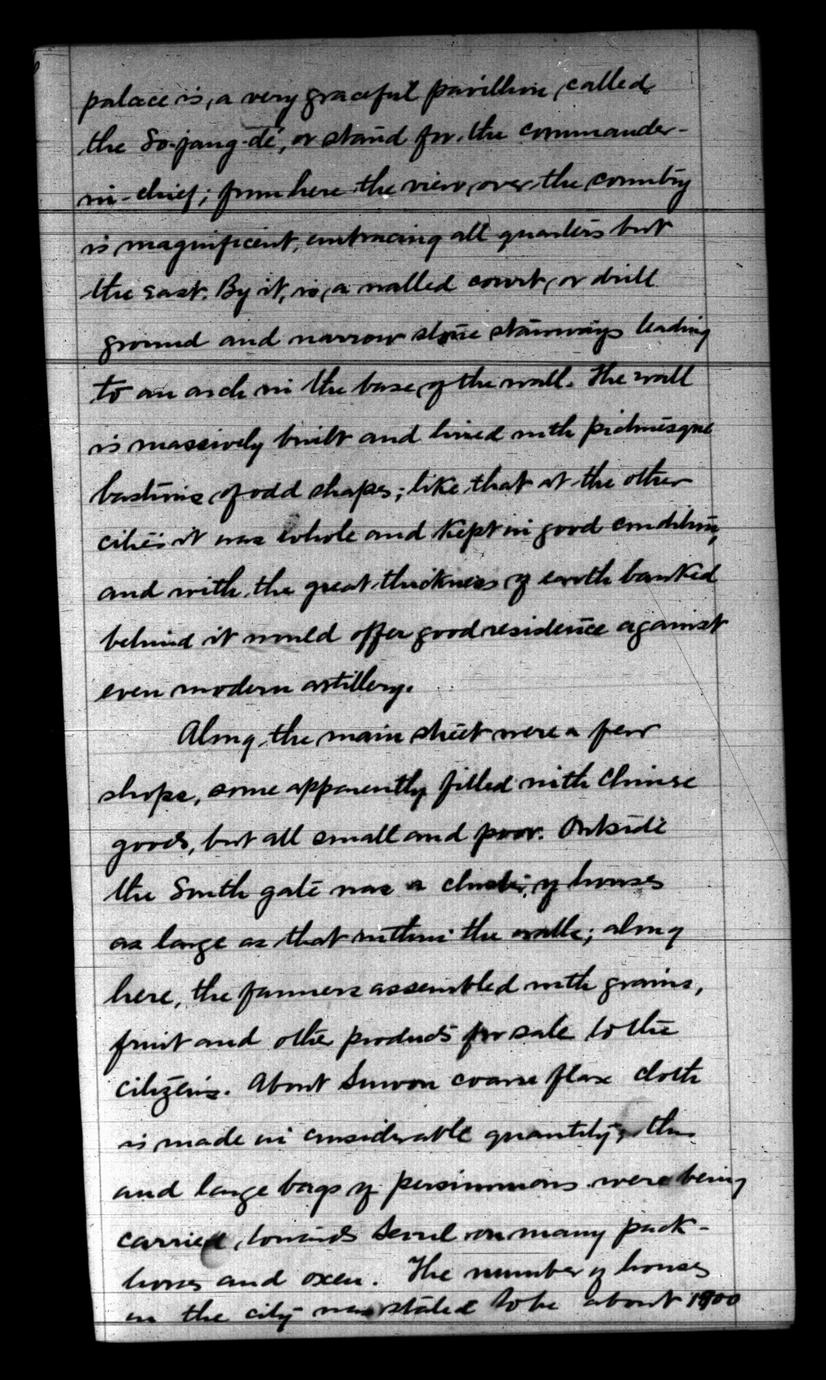 palace is, a very graceful pavillion, called
the So-jang-dé, or stand for the commander-
in-chief; from here the view over the country
is magnificent, embracing all quarters but
the east. By it, is, a walled court, or drill
ground and narrow stone stairways leading
to an arch in the base of the wall. The wall
is massively built and lined with picturesque
bastions of odd shapes; like that at the other
cities it was whole and kept in good condition,
and with the great thickness of earth banked
behind it would offer good residence against
even modern artillery.
Along the main street were a few
shops, some apparently filled with Chinese
goods, but all small and poor. Outside
the South gate was a cluster of houses
as large as that within the walls; along
here, the farmers assembled with grains,
fruit and other products for sale to the
citizens. About Suwon coarse flax cloth
is made in considerable quantity; this
and large bags of persimmons were being
carried, towards Seoul on many pack-
horses and oxen. The number of houses
in the city was stated to be about 1900